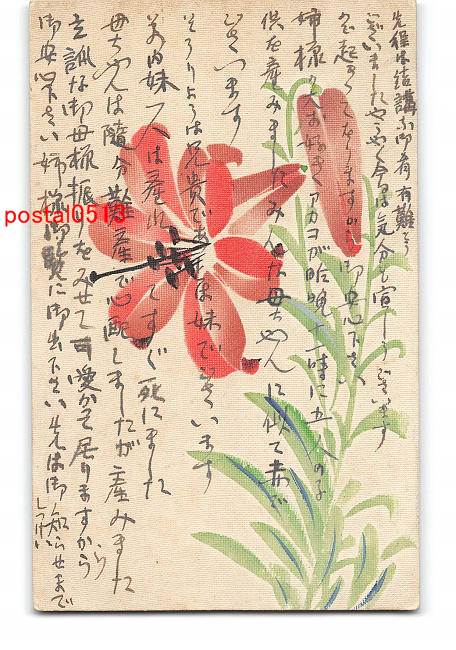 先程は結講な御肴有難う
ございましたやうやく今日は気分も宜しうございます
起きてをりますから御安心下さい
姉様の大好きアカヨが昨晩十一時に五人の子
供を産みましたみんな母ちやんに似て赤で
ございます
そのうち は兄貴で は妹でございます
内妹一人は産れてすぐ死にました
母ちやんは随分難産で心配しましたが産みましたら
立派な御母様振りをみせて可愛がつて居りますから
御安心下さい姉様御覧に御出下さい先は御知らせまで
しつけい
postal0513